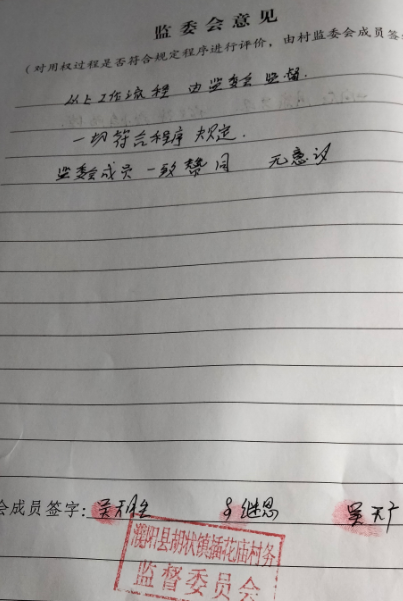 监委会意见
(对用权过程是否符合规定程序进行评价，由村监委会成员签
以上工作流程 由监委会监督.
一切符合程序规定.
监委成员一致赞同 无意议
会成员签字: 吴 继恩 吴天广
濮阳县胡状镇插花庙村务
监督委员会